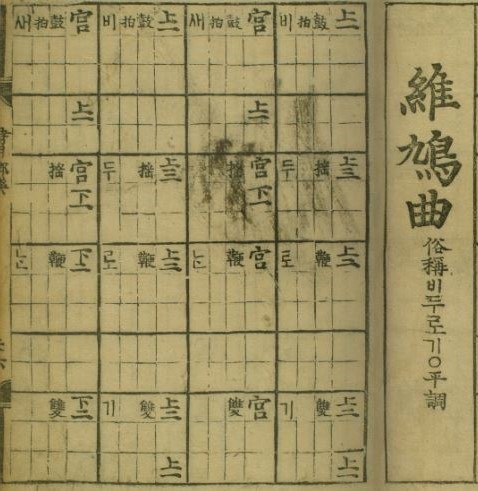 維鳩曲
俗稱비두로기○平調
上一 上三 上二 上二 上一
鼓 搖 鞭 雙
拍
비 두 로 기
宮 上一 宮 下一 宮 宮
鼓 搖 鞭 雙
拍
새 ᄂᆞᆫ
上二 上三 上二 上二 上一
鼓 搖 鞭 雙
拍
비 두 로 기
宮 上一 宮 下一 下二 下二
鼓 搖 鞭 雙
拍
새 ᄂᆞᆫ